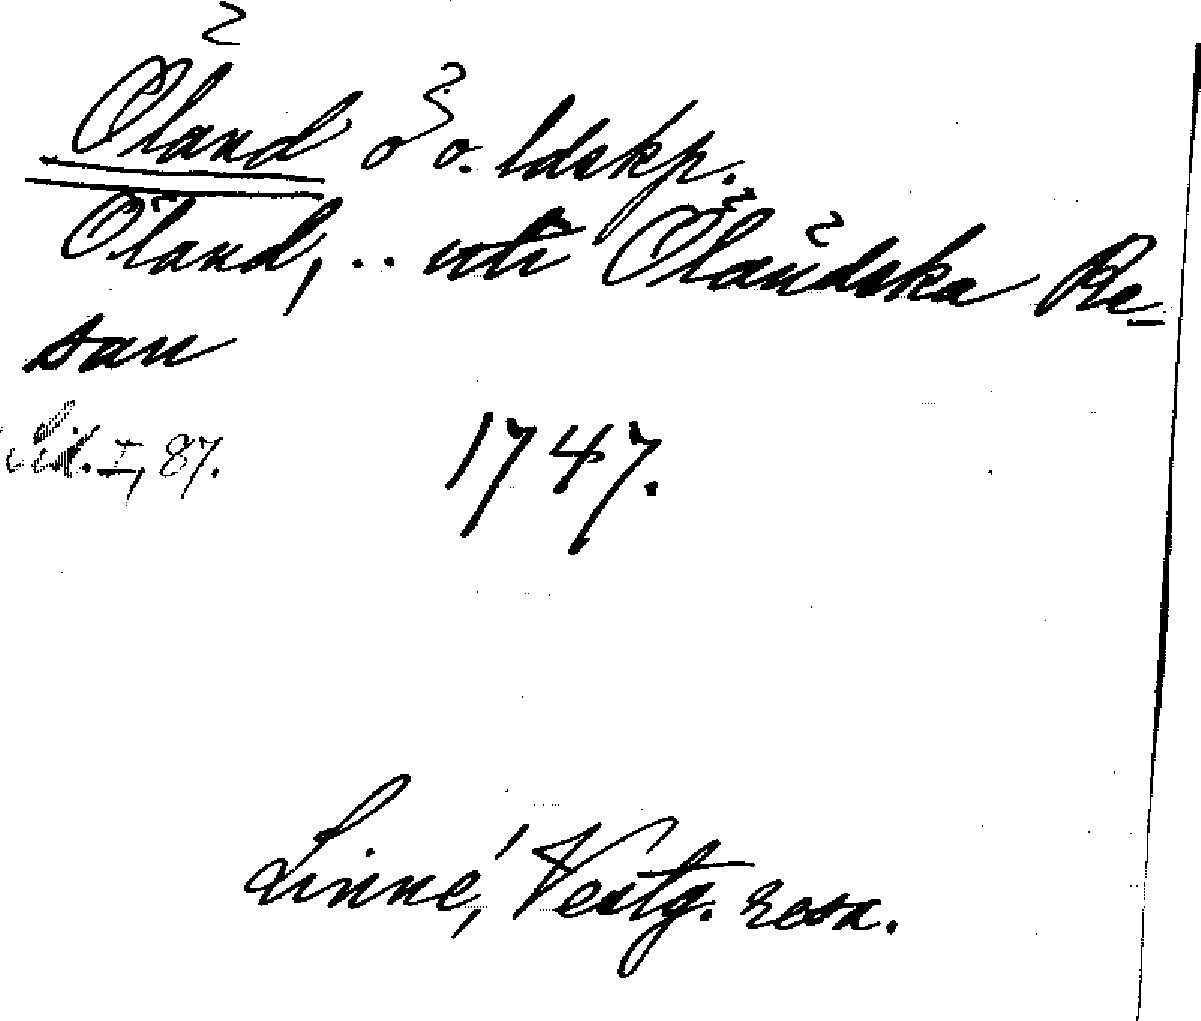 Öland ö o. ldskp.
Öland, .. uti Ölandska Re-
san
Lid. I, 87. 1747.
Linné, Vestg. resa.